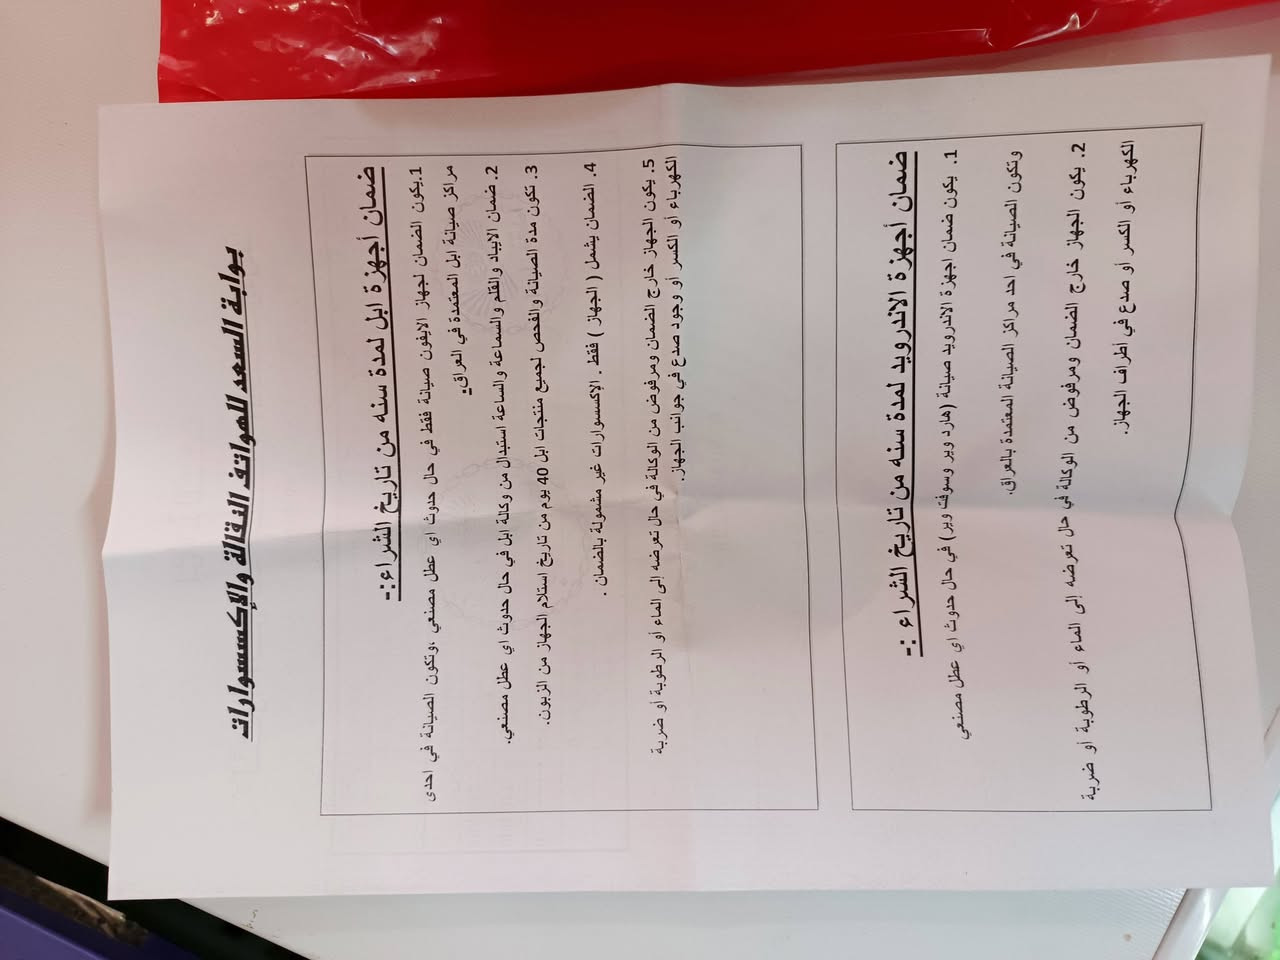 بوابة السعد للهواتف النقالة والإكسسوارات
ضمان أجهزة ابل لمدة سنه من تاريخ الشراء:-
1.يكون الضمان لجهاز الايفون صيانة فقط في حال حدوث اي عطل مصنعي ،وتكون الصيانة في احدى
مراكز صيانة ابل المعتمدة في العراق.
2. ضمان الايباد والقلم والسماعة والساعة استبدال من وكالة ابل في حال حدوث اي عطل مصنعي.
3. تكون مدة الصيانة والفحص لجميع منتجات ابل 40 يوم من تاريخ استلام الجهاز من الزبون.
4. الضمان يشمل ( الجهاز ) فقط . الإكسسوارات غير مشمولة بالضمان .
5. يكون الجهاز خارج الضمان ومرفوض من الوكالة في حال تعرضه إلى الماء أو الرطوبة أو ضربة
الكهرباء أو الكسر أو وجود صدع في جوانب الجهاز.
ضمان أجهزة الاندرويد لمدة سنه من تاريخ الشراء :-
1. يكون ضمان اجهزة الاندرويد صيانة (هارد وير وسوفت وير) في حال حدوث اي عطل مصنعي
وتكون الصيانة في احد مراكز الصيانة المعتمدة بالعراق.
2. يكون الجهاز خارج الضمان ومرفوض من الوكالة في حال تعرضه إلى الماء أو الرطوبة أو ضربة
الكهرباء أو الكسر أو صدع في أطراف الجهاز.